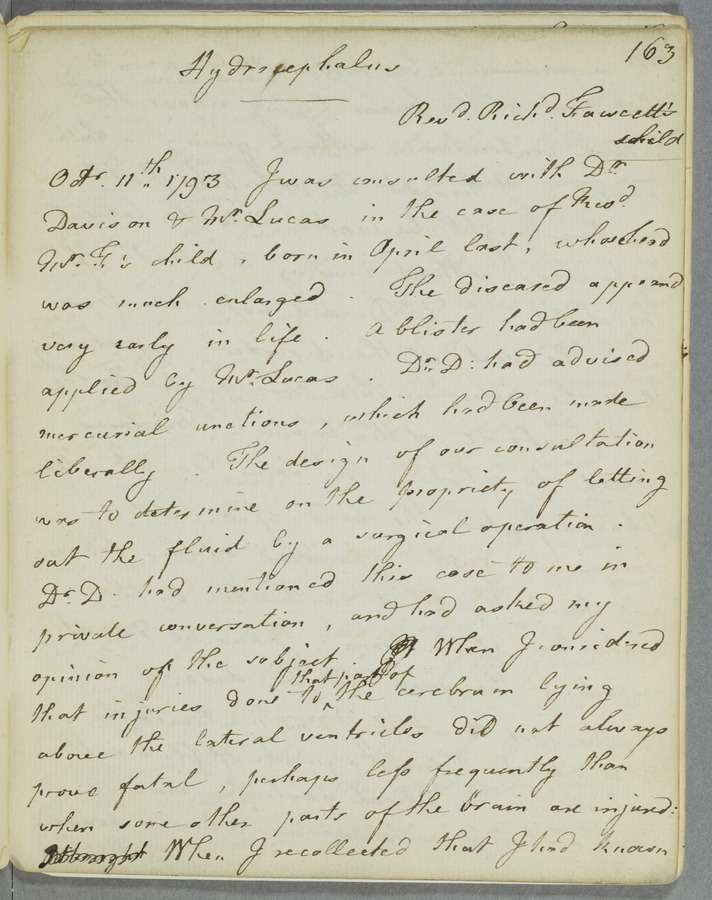 163
Hydrocephalus
Revd. Richd. Fawcett's
child
Octr. 11th. 1793 I was consulted with Dr.
Davison & Mr. Lucas in the case of Revd.
Mr. F's child, born in April last, whose head
was much enlarged. The diseased appeared
very early in life. A blister had been
applied by Mr. Lucas. Dr. D: had advised
mercurial unctions, which had been made
liberally. The design of our consultation
was to determine on the propriety of letting
out the fluid by a surgical operation.
Dr. D. had mentioned this case to me in
private conversation, and had asked my
opinion of the subject When I considered
that part of
that injuries done to ‸ the cerebrum lying
above the lateral ventricles did not always
prove fatal, perhaps less frequently than
when some other parts of the brain are injured:
When I recollected that I had known